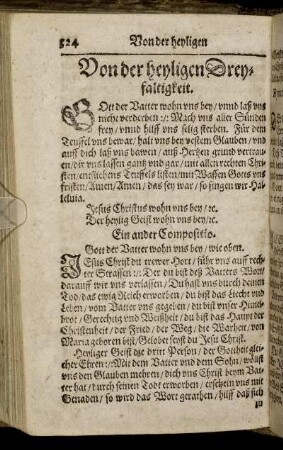 524 Von der heyligen
Von der heyligen Drey-
faltigkeit.
GOtt der Vatter wohn vns bey / vnnd laß vns
nicht verderben :/: Mach vns aller Sünden
frey / vnnd hilff vns selig sterben. Für dem
Teuffel vns bewar / halt vns bey vestem Glauben / vnd
auff dich laß vns bawen / auß Hertzen grund vertrau-
en / dir vns lassen gantz vnd gar / mit allen rechten Chri-
sten / entfliehens Teuffels listen / mit Waffen Gotts vns
fristen / Amen / Amen / das sey war / so singen wir Hal-
leluia.
Jesus Christus wohn vns bey / ꝛc.
Der heylig Geist wohn vns bey / ꝛc.
Ein ander Compositio.
Gott der Vatter wohn vns bey / wie oben.
JEsus Christ du trewer Hort / führ vns auff rech-
ter Strassen :/: Der du bist deß Vatters Wort /
darauff wir vns verlassen / Du hast vns durch deinen
Tod / das ewig Reich erworben / du bist das Liecht vnd
Leben / vom Vatter vns gegeben / du bist vnser Himmel-
brot / Gerechtig vnd Weißheit / du bist das Haupt der
Christenheit / der Fried / der Weg / die Warheit / von
Maria geboren bist / Gelobet seystu Jesu Christ.
Heyliger Geist die dritt Person / der Gottheit glei-
cher Ehren :/: Mit dem Vatter vnd dem Sohn / wöllst
vns den Glauben mehren / dich vns Christ beym Vat-
ter hat / durch seinen Tod erworben / erschein vns mit
Genaden / so wird das Wort gerathen / hilff daß sich